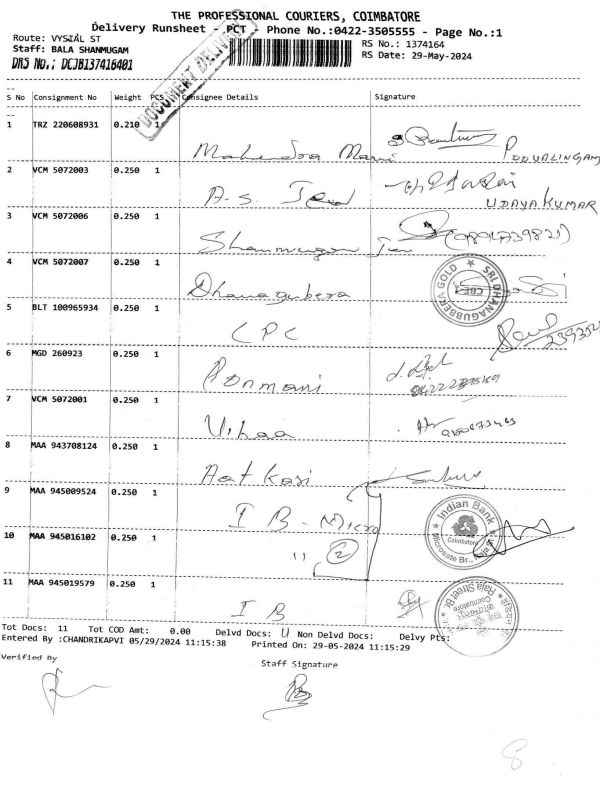 THE PROFESSIONAL COURIERS, COIMBATORE
Delivery Runsheet - PCT - Phone No.:0422-3505555 - Page No.:1
Route: VYSIAL ST
RS No.: 1374164
Staff: BALA SHANMUGAM
RS Date: 29-May-2024
DRS NO.: DCJB137416401
DOCUMENT DELIVERY
S No Consignment No Weight PCS Consignee Details Signature
1 TRZ 220608931 0.210 1
Mahendra Mani PODUVALINGAM
2 VCM 5072003 0.250 1
A-S. UDAYAKUMAR
3 VCM 5072006 0.250 1
Shanmugan
4 VCM 5072007 0.250 1
Dhanagubera SRI DHANAGUBBERA GOLD CBE-1
5 BLT 100965934 0.250 1
CPC
6 MGD 260923 0.250 1
Ponmani
7 VCM 5072001 0.250 1
Vihaa
8 MAA 943708124 0.250 1
Aatkasi
9 MAA 945009524 0.250 1
I B - Micro Indian Bank Coimbatore Microsate Br.,
10 MAA 945016102 0.250 1
11 2
11 MAA 945019579 0.250 1
I B Raja Street Br Coimbatore
Tot Docs: 11 Tot COD Amt: 0.00 Delvd Docs: 11 Non Delvd Docs: Delvy Pts:
Entered By :CHANDRIKAPVI 05/29/2024 11:15:38 Printed On: 29-05-2024 11:15:29
Verified By
Staff Signature
8